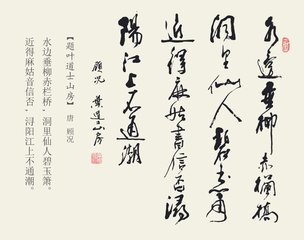 水邊垂柳赤欄橋
洞里仙人碧玉簫
近得麻姑書信否潯
陽江上不通潮
顧況 葉道士山房
【题叶道士山房】 唐 顾况
水边垂柳赤栏桥，洞里仙人碧玉箫。
近得麻姑音信否，浔阳江上不通潮。